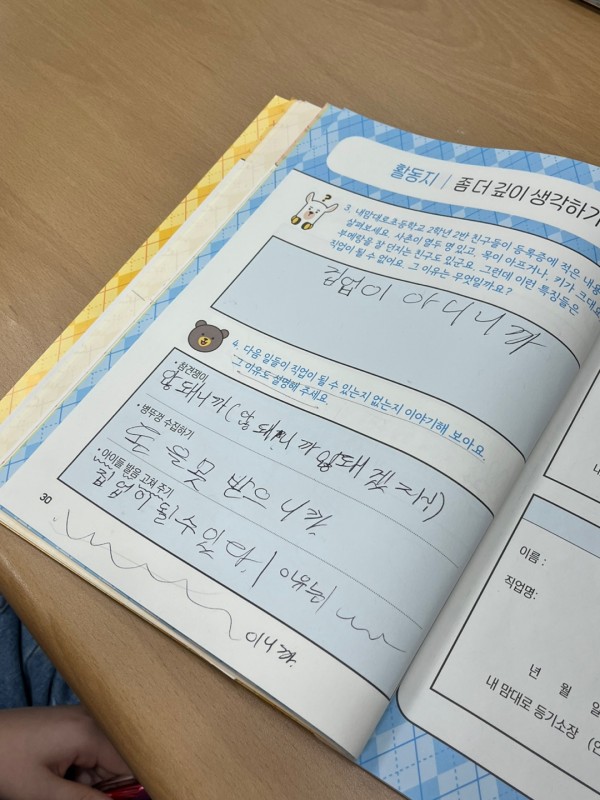 활동지 | 좀 더 깊이 생각하기
3. 내맘대로초등학교 2학년 2반 친구들이 등록증에 적은 내용
살펴보세요. 사촌이 열두 명 있고, 목이 아프거나, 키가 크대요
부메랑을 잘 던지는 친구도 있군요. 그런데 이런 특징들은
직업이 될 수 없어요. 그 이유는 무엇일까요?
직업이 아니니까
4. 다음 일들이 직업이 될 수 있는지 없는지 이야기해 보아요.
그 이유도 설명해 주세요.
• 참견쟁이
안돼니까(안돼니까 안돼겠지)
• 병뚜껑 수집하기
돈을 못 받으니까
• 아이들 발음 고쳐 주기
직업이 될 수 있
이유는
이니까.
30
이름 :
직업명:
년 월 일
내 맘대로 등기소장 (인